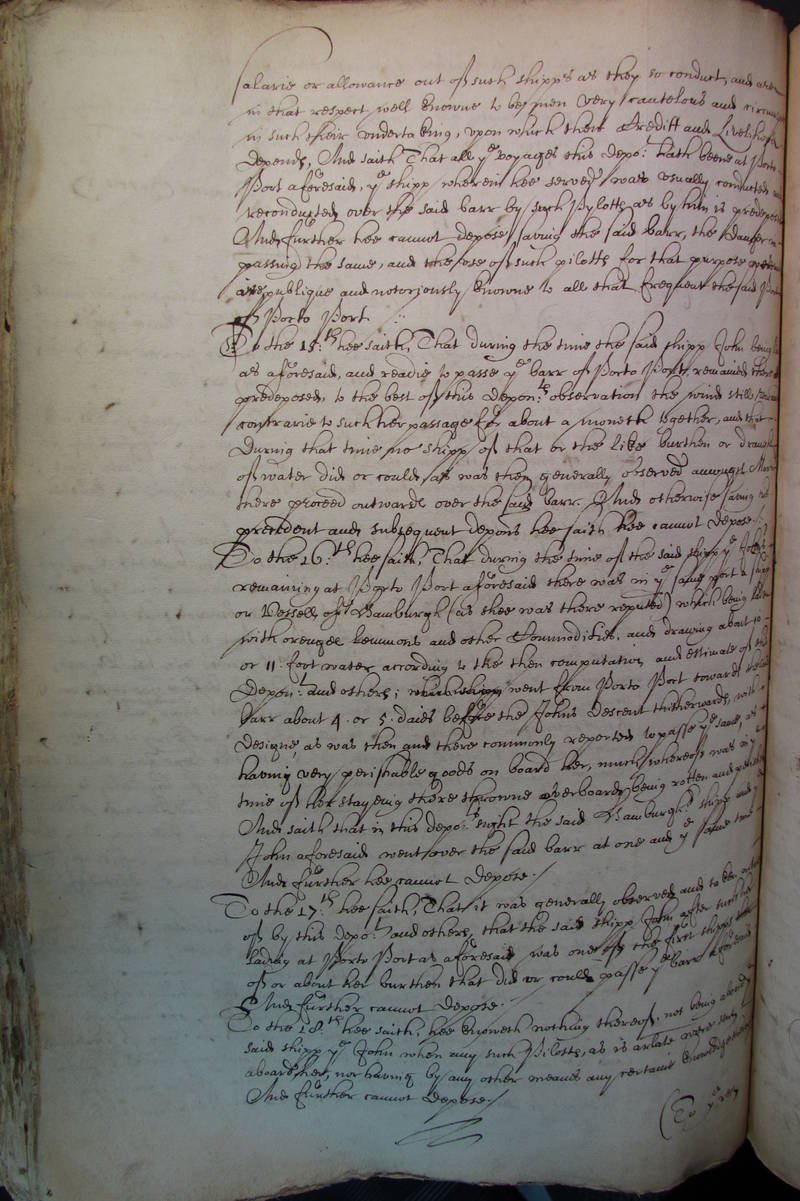 salarie or allowance out of such shipps as they so conduct, and are
in that respect well knowne to bee men very cautelous and
in such their undertaking, upon which their Creditt and Livelihood
depends, And saith That all ye voyages this depo:t hath beene at Porto
Port aforesaid, ye shipp wherein hee served was usually conducted and
reconducted over the said barr by such Pylotts as by him is predeposed
And further hee cannot depose saving the said barr, the danger in
passing the same, and the use of such pilotts for that purpose
are publique and notoriously knowne to all that frequent the said Port
of Porto Port.
To the 15:th hee saith, That during the time the said shipp John being
as aforesaid, and readie to passe ye barr of Porto Port, remained there
predeposed, to the best of this Depon:ts observation the wind still
contrarie to such her passage for about a moneth together, and that
During that time no shipp of that or the like burthen or draught
of water did or could as was then generally observed amongst
there proceed outwards over the said barr. And otherwise saving his
precedent and subsequent depons hee saith hee cannot depose./
To the 16:th hee saith, That during the time of the said shipp ye John
remaining at Porto Port aforesaid there was in ye same port a shipp
or Vessell of Hamburgh (as shee was there reputed) which being laden
with orenges lemmons and other Commodities, and drawing about 10
or 11 foot water according to the then computation and estimate of this
Depon:t and others; went from Porto Port towards the said
barr about 4 or 5 daies before the Johns Descent thitherwards, with a
Designe, as was then and there commonly reported to passe ye same, as
having very perishable goods on board her, much whereof was in ye
time of her staying there throwne overboard being rotten and
And saith that in this depo:ts sight the said Hamburgh shipp and ye
John aforesaid went over the said barr at one and ye same time
And further hee cannot depose./
To the 17:th hee saith, That it was generally observed and to bee
of by this depo:t and others, that the said shipp John after such her
lading at Porto Port as aforesaid was one of the first shipps
of or about her burthen that did or could passe ye barr aforesaid
And further cannot depose.
To the 18:th hee saith, hee knoweth nothing thereof, not being aboard ye
said shipp ye John when any such Pilotts, as is arlate were sent
aboard her, nor having by any other meanes any certaine knowledge
And further cannot depose./
(To ye